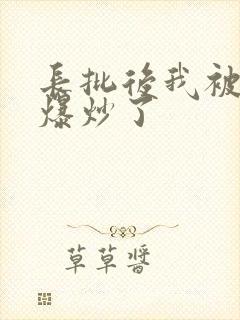 長批後我被
爆炒了
草草醬